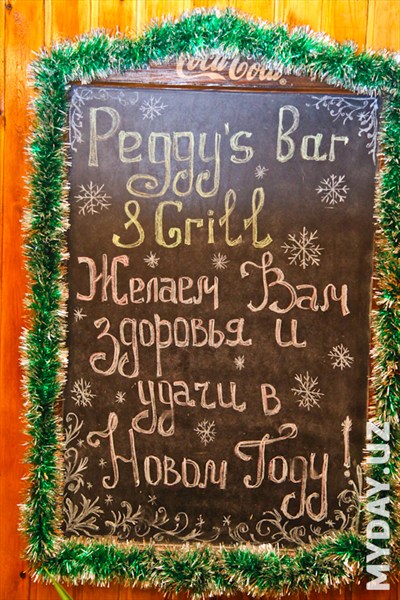 Coca-Cola
Peggy's Bar
& Grill
Желаем Вам
здоровья и
удачи в
Новом Году!
MYDAY.UZ